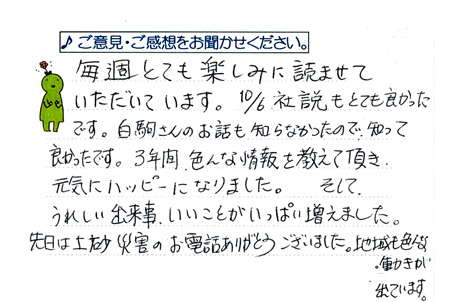 ♪ご意見・ご感想をお聞かせください。
毎週とても楽しみに読ませて
いただいています。10/6 社説もとても良かった
です。白駒さんのお話も知らなかったので、知って
良かったです。3年間、色んな情報を教えて頂き、
元気にハッピーになりました。 そして、
うれしい出来事、いいことがいっぱい増えました。
先日は土砂災害のお電話ありがとうございました。地域も色んな
動きが
出ています。